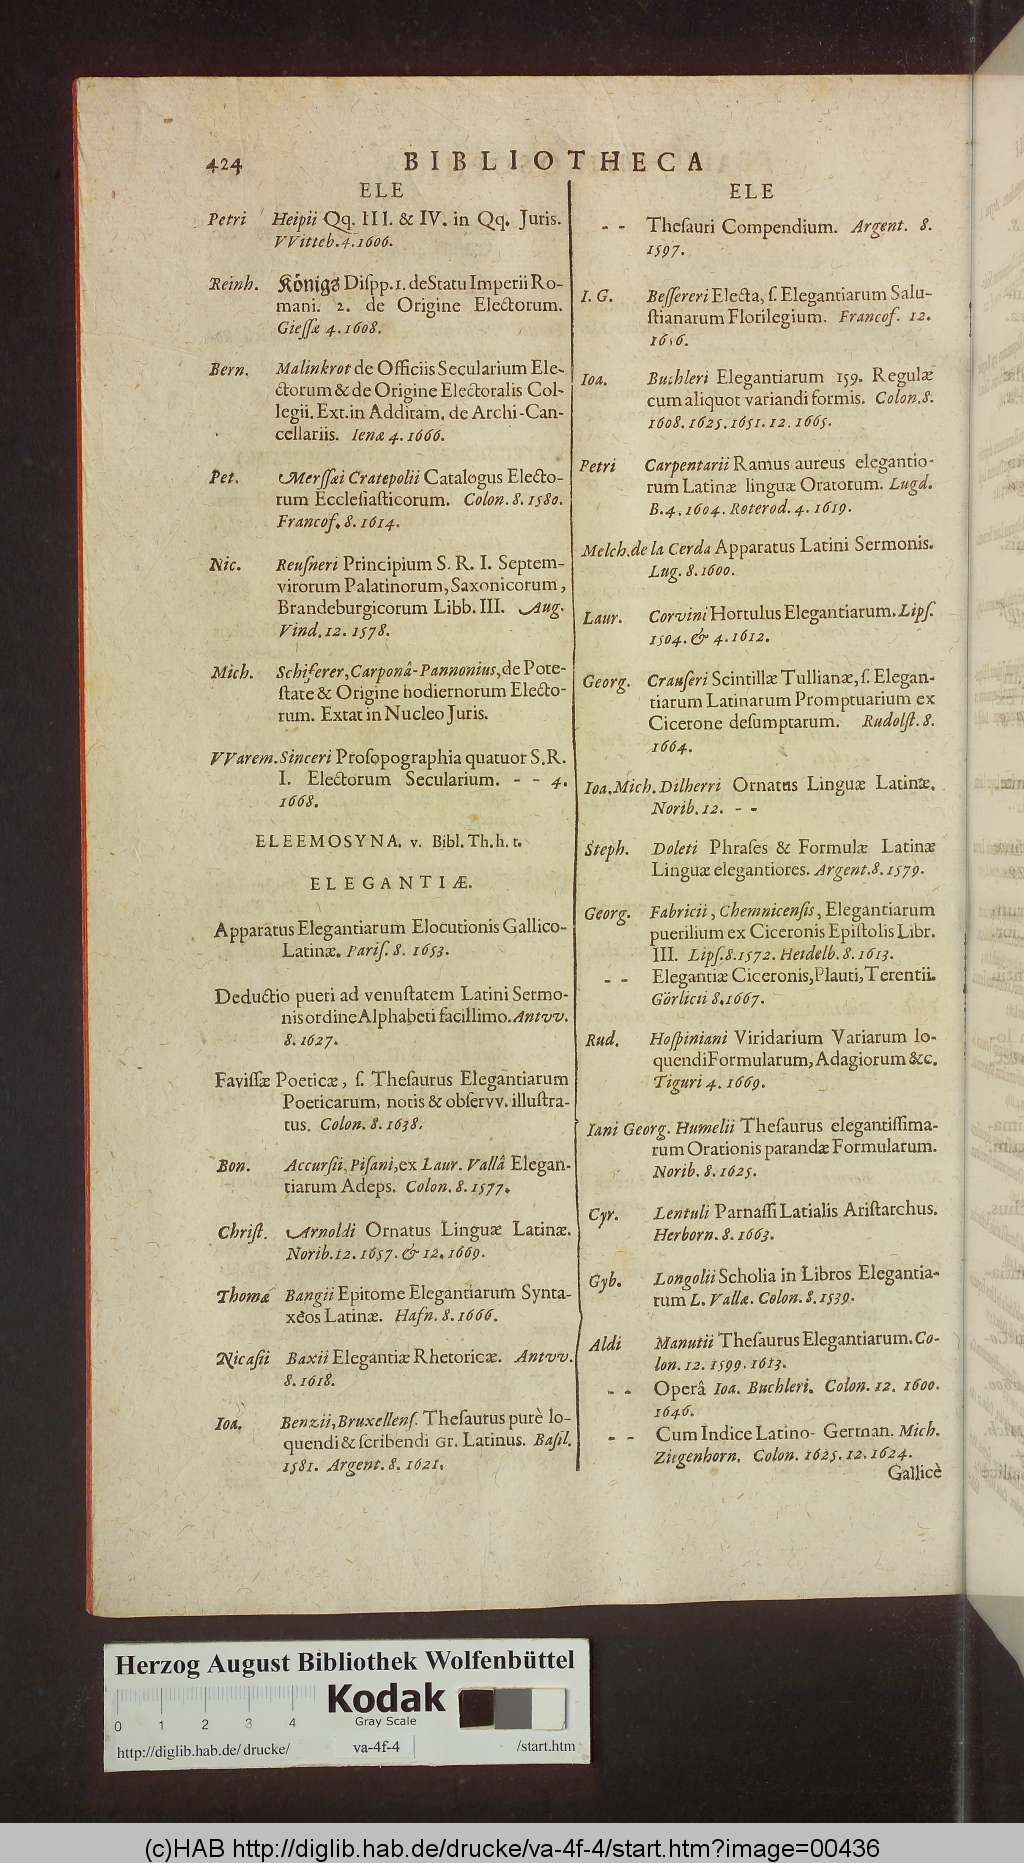 424
BIBLIOTHECA
ELE
Petri Heipii Qq. III. & IV. in Qq. Juris.
VVitteb. 4. 1606.
Reinh. Königs Diſpp. 1. de Statu Imperii Ro-
mani. 2. de Origine Electorum.
Gieſſæ 4. 1608.
Bern. Malinkrot de Officiis Secularium Ele-
ctorum & de Origine Electoralis Col-
legii. Ext. in Additam. de Archi-Can-
cellariis. Ienæ 4. 1666.
Pet. Merſſæi Cratepolii Catalogus Electo-
rum Eccleſiaſticorum. Colon. 8. 1580.
Francof. 8. 1614.
Nic. Reuſneri Principium S. R. I. Septem-
virorum Palatinorum, Saxonicorum,
Brandeburgicorum Libb. III. Aug.
Vind. 12. 1578.
Mich. Schiferer, Carponâ-Pannonius, de Pote-
ſtate & Origine hodiernorum Electo-
rum. Extat in Nucleo Juris.
VVarem. Sinceri Proſopographia quatuor S. R.
I. Electorum Secularium. - - 4.
1668.
ELEEMOSYNA. v. Bibl. Th. h. t.
ELEGANTIÆ.
Apparatus Elegantiarum Elocutionis Gallico-
Latinæ. Pariſ. 8. 1653.
Deductio pueri ad venuſtatem Latini Sermo-
nis ordine Alphabeti facillimo. Antvv.
8. 1627.
Faviſſæ Poeticæ, ſ. Theſaurus Elegantiarum
Poeticarum, notis & obſervv. illuſtra-
tus. Colon. 8. 1638.
Bon. Accurſii, Piſani, ex Laur. Vallâ Elegan-
tiarum Adeps. Colon. 8. 1577.
Chriſt. Arnoldi Ornatus Linguæ Latinæ.
Norib. 12. 1657. & 12. 1669.
Thomæ Bangii Epitome Elegantiarum Synta-
xeos Latinæ. Hafn. 8. 1666.
Nicaſii Baxii Elegantiæ Rhetoricæ. Antvv.
8. 1618.
Ioa. Benzii, Bruxellenſ. Theſaurus purè lo-
quendi & ſcribendi Gr. Latinus. Baſil.
1581. Argent. 8. 1621.
ELE
- - Theſauri Compendium. Argent. 8.
1597.
I. G. Beſſereri Electa, ſ. Elegantiarum Salu-
ſtianarum Florilegium. Francof. 12.
1656.
Ioa. Buchleri Elegantiarum 159. Regulæ
cum aliquot variandi formis. Colon. 8.
1608. 1625. 1651. 12. 1665.
Petri Carpentarii Ramus aureus elegantio-
rum Latinæ linguæ Oratorum. Lugd.
B. 4. 1604. Roterod. 4. 1619.
Melch. de la Cerda Apparatus Latini Sermonis.
Lug. 8. 1600.
Laur. Corvini Hortulus Elegantiarum. Lipſ.
1504. & 4. 1612.
Georg. Crauſeri Scintillæ Tullianæ, ſ. Elegan-
tiarum Latinarum Promptuarium ex
Cicerone deſumptarum. Rudolſt. 8.
1664.
Ioa. Mich. Dilherri Ornatus Linguæ Latinæ.
Norib. 12. - -
Steph. Doleti Phraſes & Formulæ Latinæ
Linguæ elegantiores. Argent. 8. 1579.
Georg. Fabricii, Chemnicenſis, Elegantiarum
puerilium ex Ciceronis Epiſtolis Libr.
III. Lipſ. 8. 1572. Heidelb. 8. 1613.
- - Elegantiæ Ciceronis, Plauti, Terentii.
Görlicii 8. 1667.
Rud. Hoſpiniani Viridarium Variarum lo-
quendi Formularum, Adagiorum &c.
Tiguri 4. 1669.
Iani Georg. Humelii Theſaurus elegantiſſima-
rum Orationis parandæ Formularum.
Norib. 8. 1625.
Cyr. Lentuli Parnaſſi Latialis Ariſtarchus.
Herborn. 8. 1663.
Gyb. Longolii Scholia in Libros Elegantia-
rum L. Vallæ. Colon. 8. 1539.
Aldi Manutii Theſaurus Elegantiarum. Co-
lon. 12. 1599. 1613.
- - Operâ Ioa. Buchleri. Colon. 12. 1600.
1646.
- - Cum Indice Latino-German. Mich.
Ziegenhorn. Colon. 1625. 12. 1624.
Gallicè
Herzog August Bibliothek Wolfenbüttel
Kodak
Gray Scale
0 1 2 3 4
http://diglib.hab.de/drucke/ va-4f-4 /start.htm
(c)HAB http://diglib.hab.de/drucke/va-4f-4/start.htm?image=00436